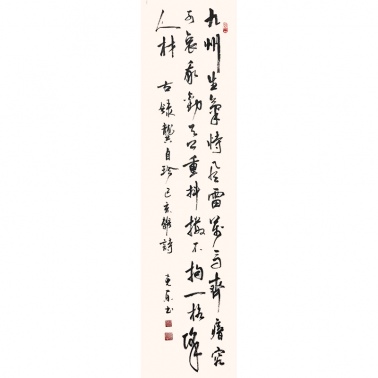 九州生氣恃風雷萬馬齊瘖究
可哀我勸天公重抖擻不拘一格降
人材 古錄龔自珍己亥雜詩
書